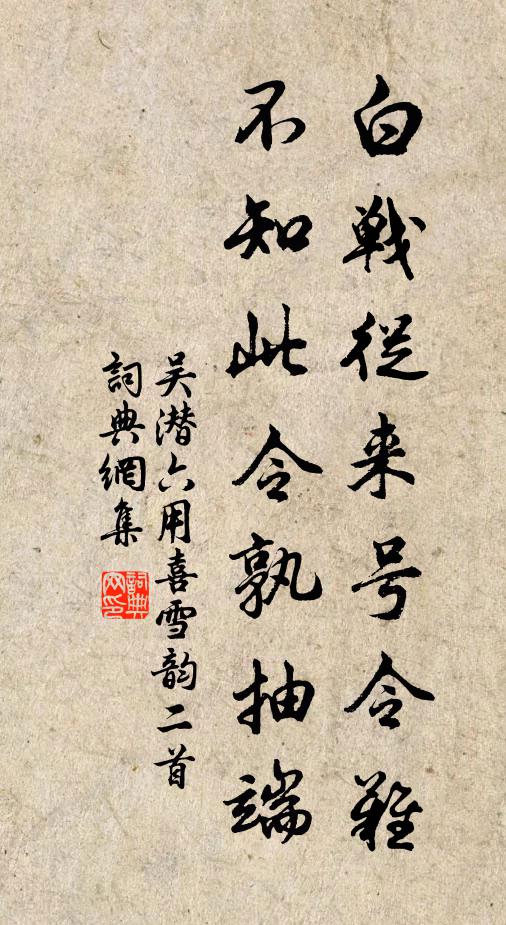 白戰從来号令難
不知此令孰抽端
吴潜六用喜雪韵二首
詞典網集
詞典網印